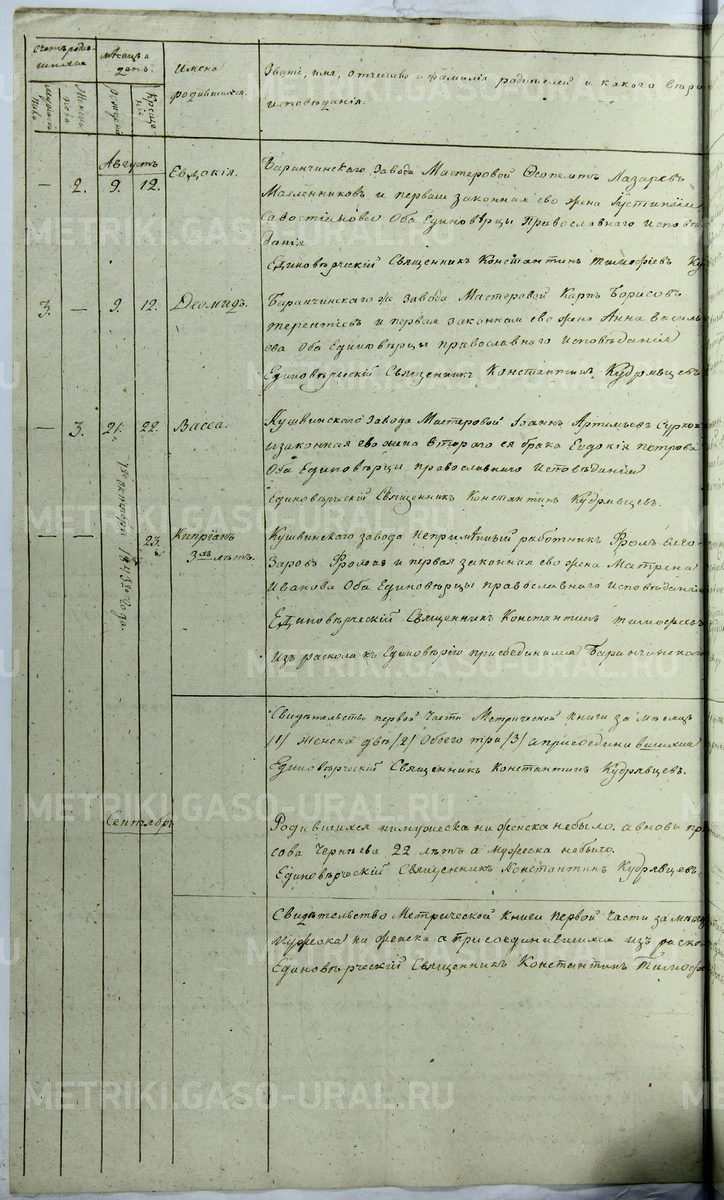 Счетъ родив-
шихся
Мѣсяцъ и
день.
Имена
родившихся.
Званіе, имя, отчество и фамилія родителей и какого вѣро
исповѣданія.
Мужеска
пола
Женска
пола
Рожденія
Креще
нія
Августъ
— 2. 9. 12. Евдокія.
Баранчинскаго Завода Мастеровой Лазаревъ
Масленниковъ и первая законная его жена Густинія
Савостіянова Оба Единовѣрцы Православнаго Исповѣ
данія
Единовѣрческій Священникъ Константинъ Тимофіевъ Куд
3. — 9. 12. Деомидъ.
Баранчинскаго ж Завода Мастеровой Карпъ Борисовъ
Терентіевъ и первая законная его жена Анна Василь
ева Оба Единовѣрцы православнаго исповѣданія
Единовѣрческій Священникъ Константинъ Кудрявцевъ
— 3. 21. 22. Васса.
Кушвинскаго Завода Мастеровой Іоаннъ Артемьевъ Сурко
и законная его жена втораго ея брака Евдокія Петрова
Оба Единовѣрцы православнаго Исповѣданія
Единовѣрческій Священникъ Константинъ Кудрявцевъ.
— — 23. Кипріанъ
3хъ лѣтъ.
октября 1843го года.
Кушвинскаго завода непримѣнный работникъ Фролъ
Фроловъ и первая законная его жена Матрена
Иванова Оба Единовѣрцы православнаго Исповѣданія
Единовѣрческій Священникъ Константинъ Тимофѣевъ
Изъ раскола къ Единовѣрію присоединился Баранчинскаго
Свидѣтельство первой части Метрической книги за мѣсяцъ
/1/ Женска двѣ /2/ Обоего три /3/ а присоединившихся
Единовѣрческій Священникъ Константинъ Кудрявцевъ.
Сентябрь
Родившихся ни мужеска ни женска небыло. а вновь при
сова Чернѣева 22 лѣтъ а мужеска небыло.
Единовѣрческій Священникъ Константинъ Кудрявцевъ.
Свидѣтельство Метрической Книги первой части за мѣсяцъ
Мужеска ни женска а присоединившихся изъ раско
Единовѣрческій Священникъ Константинъ Тимофѣ
METRIKI.GASO-URAL.RU